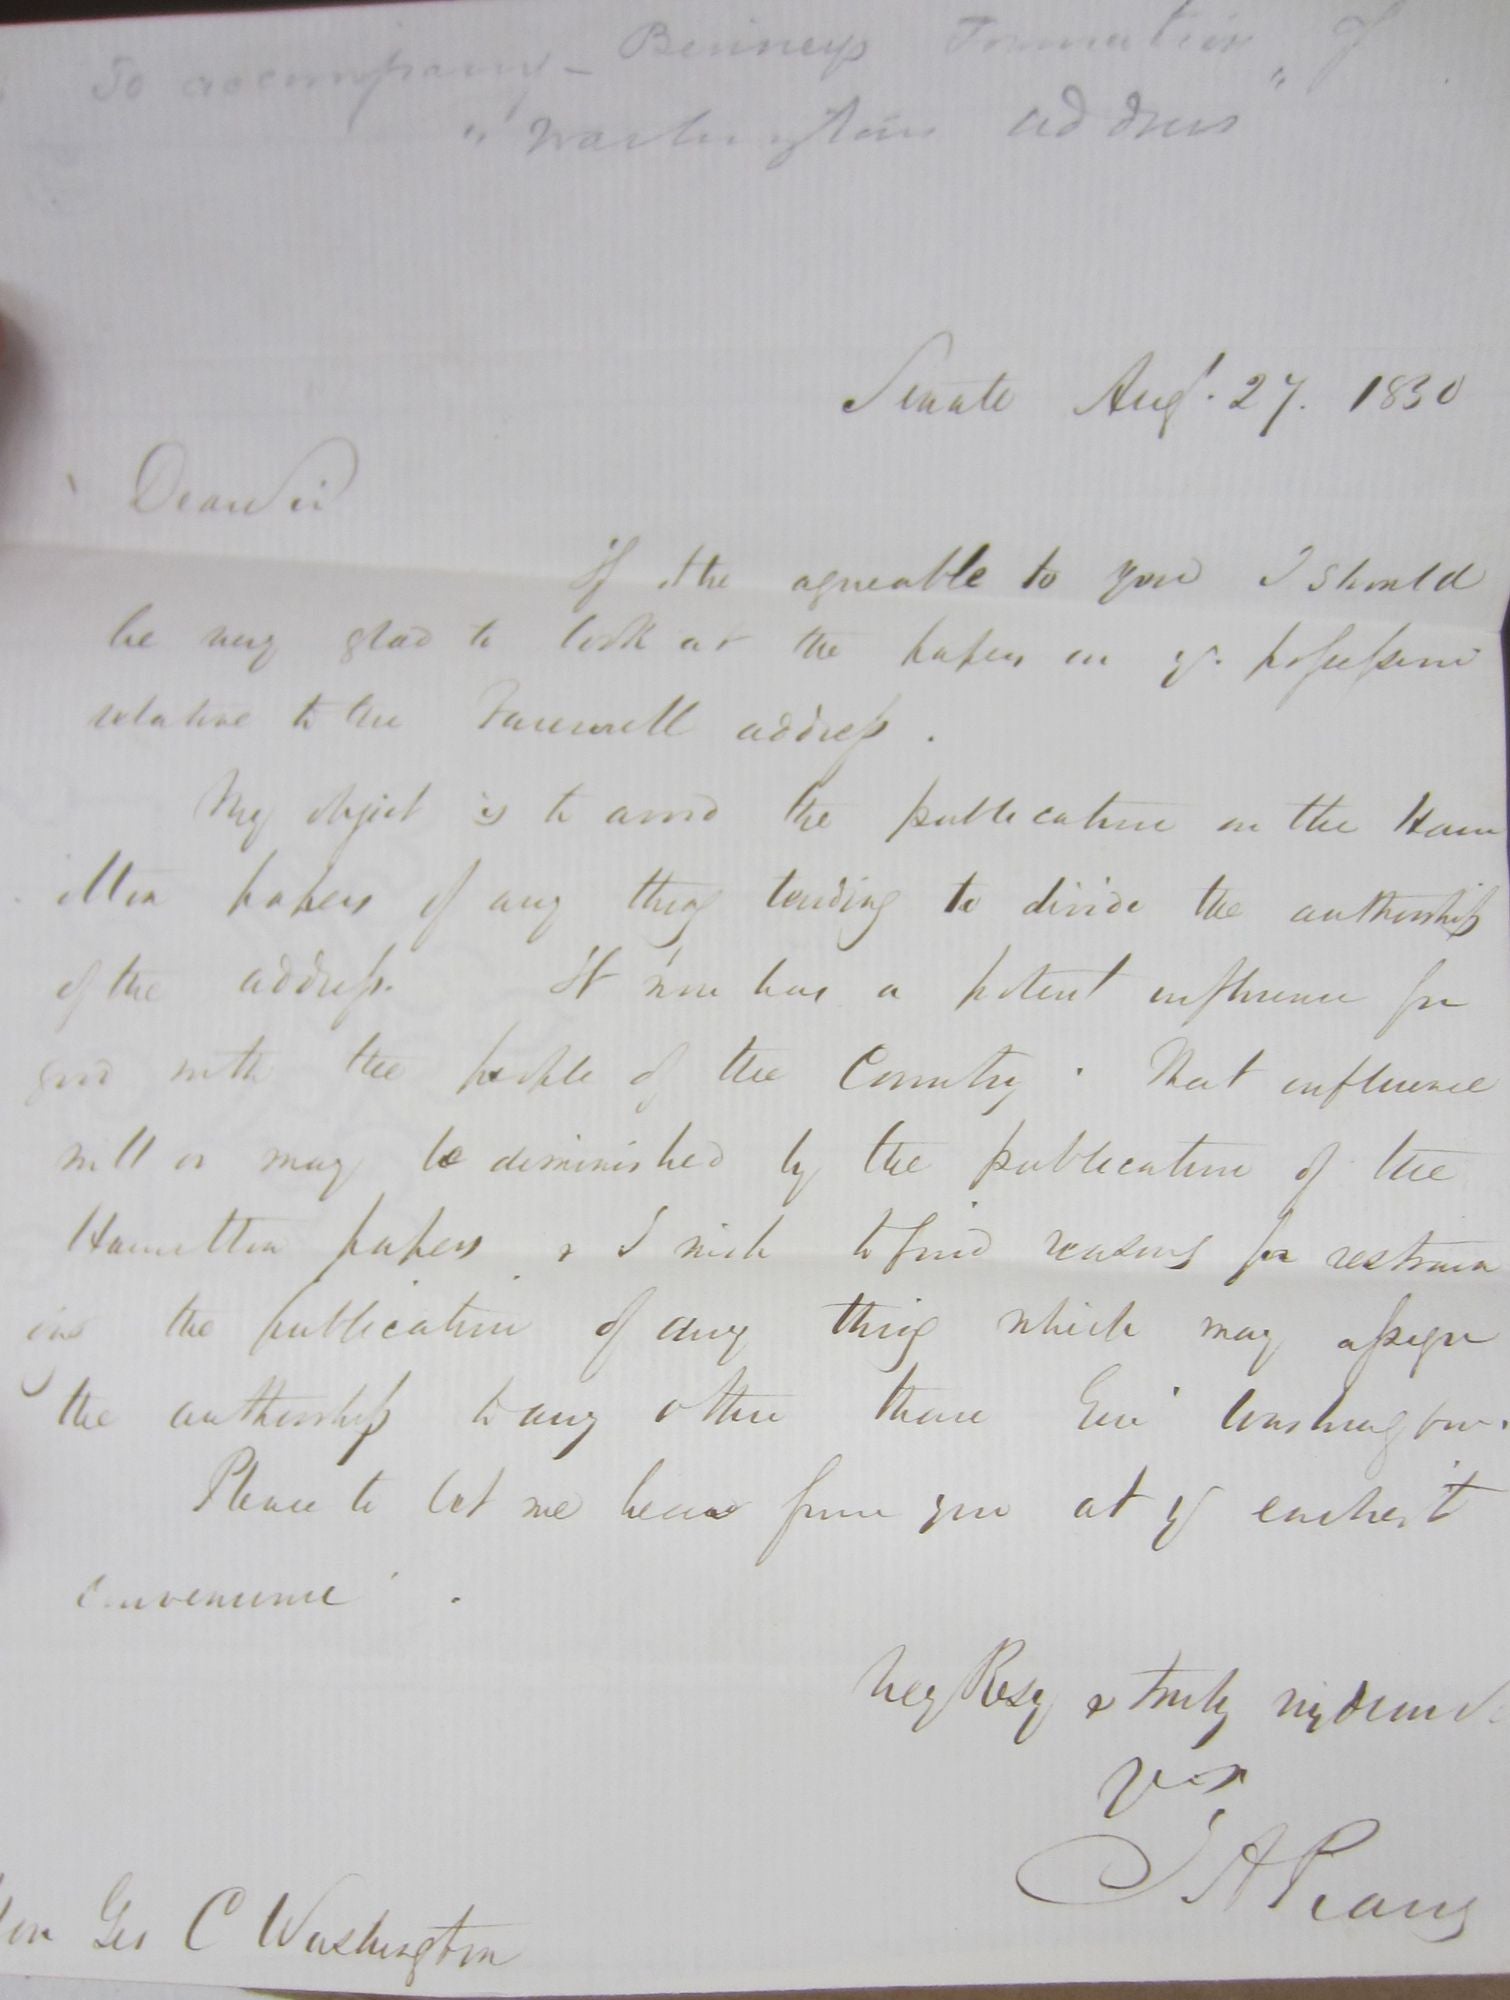 To accompany - Binneys Formation of
"Washingtons address"
Senate Augt. 27. 1850
Dear Sir
If the agreeable to you I should
be very glad to look at the papers in yr. possession
relative to the Farewell address.
My object is to avoid the publication in the Ham
ilton papers of any thing tending to divide the authorship
of the address. It now has a potent influence for
good with the people of the Country. That influence
will or may be diminished by the publication of the
Hamilton papers & I wish to find reasons for restrain
ing the publication of any thing which may assign
the authorship to any other than Genl Washington.
Please to let me hear from you at yr earliest
convenience.
Very Resy & truly my dear
yrs
J A Pearce
Hon Geo C Washington